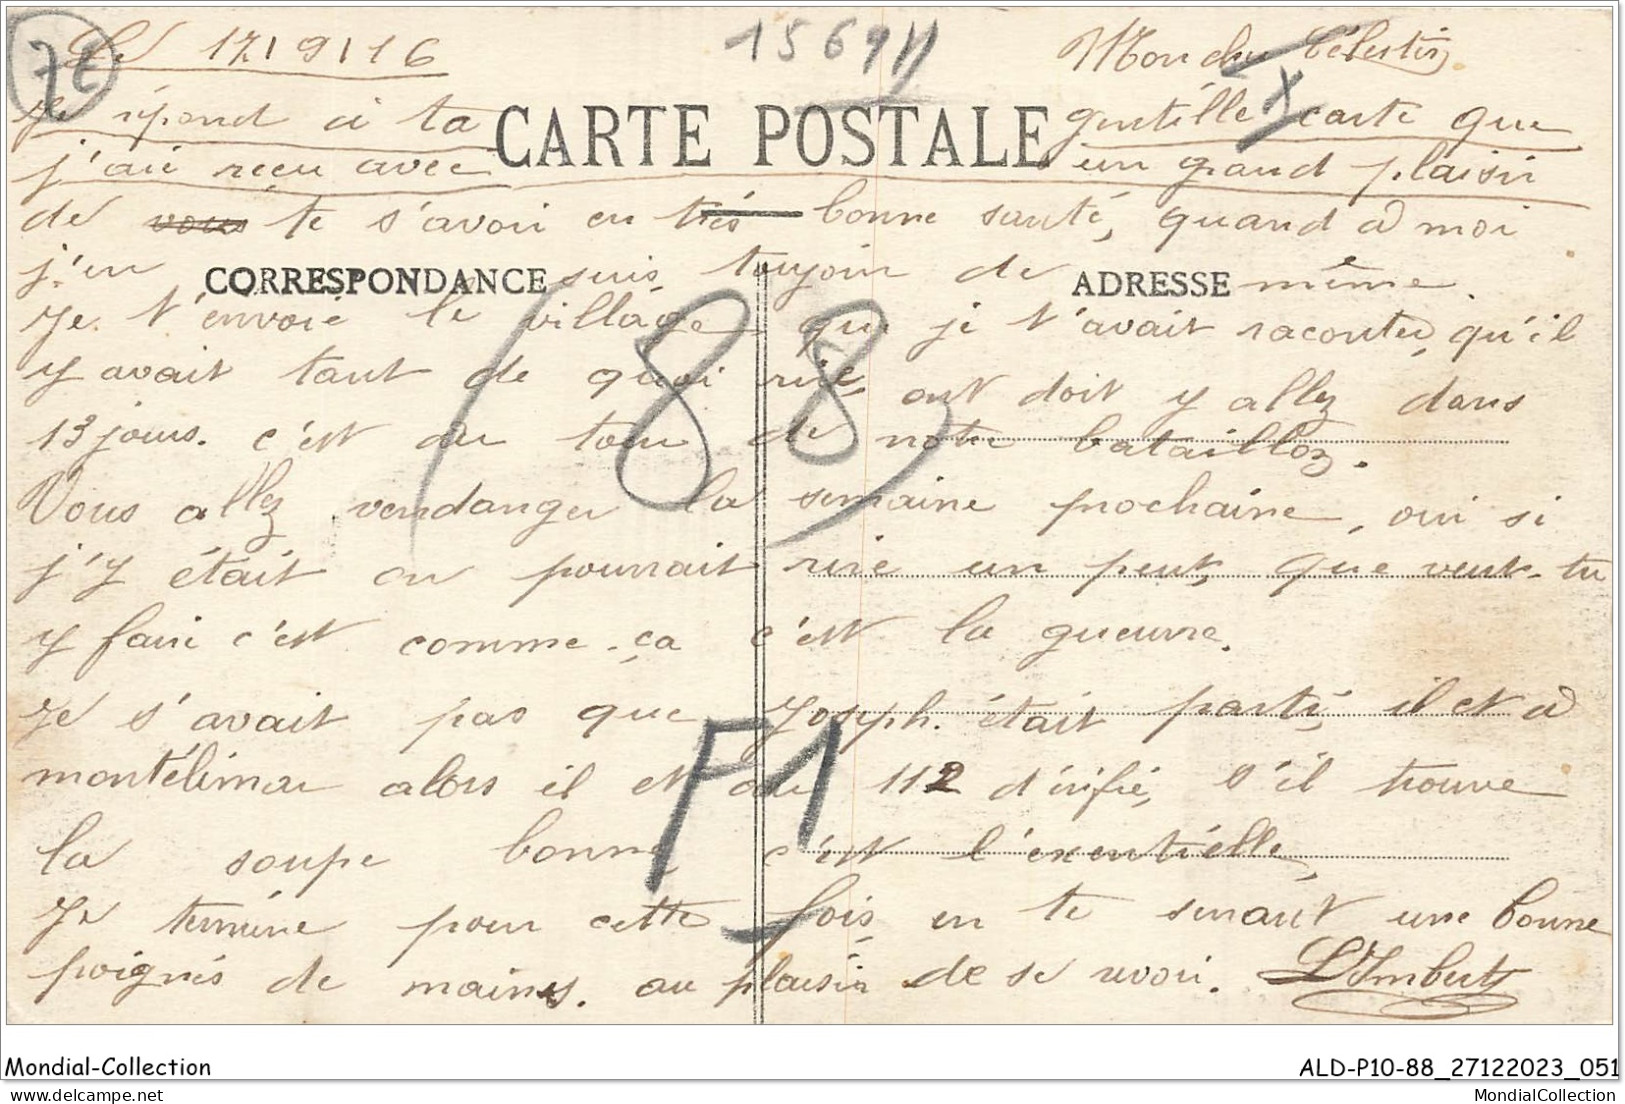 7€ Le 17/9/16 1569 Mon cher Célestin.
Je répond à ta gentille carte que
CARTE POSTALE
j'ai reçu avec un grand plaisir
de vous te s'avoir en très bonne santé, quand à moi
j'en suis toujour de même.
CORRESPONDANCE ADRESSE
Je t'envoie le village que je t'avait raconter, qu'il
y avait tant de quoi rire, ont doit y allez dans
13 jours. c'est au tour de notre bataillon.
(88)
Vous allez vendanger la semaine prochaine, oui si
j'y était on pourrait rire un peut, que veut-tu
y faire c'est comme ça c'est la gueurre.
Je s'avait pas que Joseph. était parti, il et à
montélimar alors il et au 112 d'infie, s'il trouve
P1
la soupe bonne c'est l'exentielle,
Je termine pour cette fois en te serrant une bonne
poignés de mains. au plaisir de se revoir. L Imbert
Mondial-Collection ALD-P10-88_27122023_051
delcampe.net MondialCollection